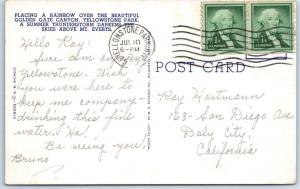 PLACING A RAINBOW OVER THE BEAUTIFUL
GOLDEN GATE CANYON, YELLOWSTONE PARK,
A SUMMER THUNDERSTORM DARKENS THE
SKIES ABOVE MT. EVERTS.
YELLOWSTONE PARK
JUL 10
6-PM
POST CARD
Hello Ray
Sure am enjoying
Yellowstone. Wish
you were here to
keep me company
drinking this fine
water, Ha!
Be seeing you!
Bruno
Ray Hartmann
163- San Diego Ave
Daly City,
California